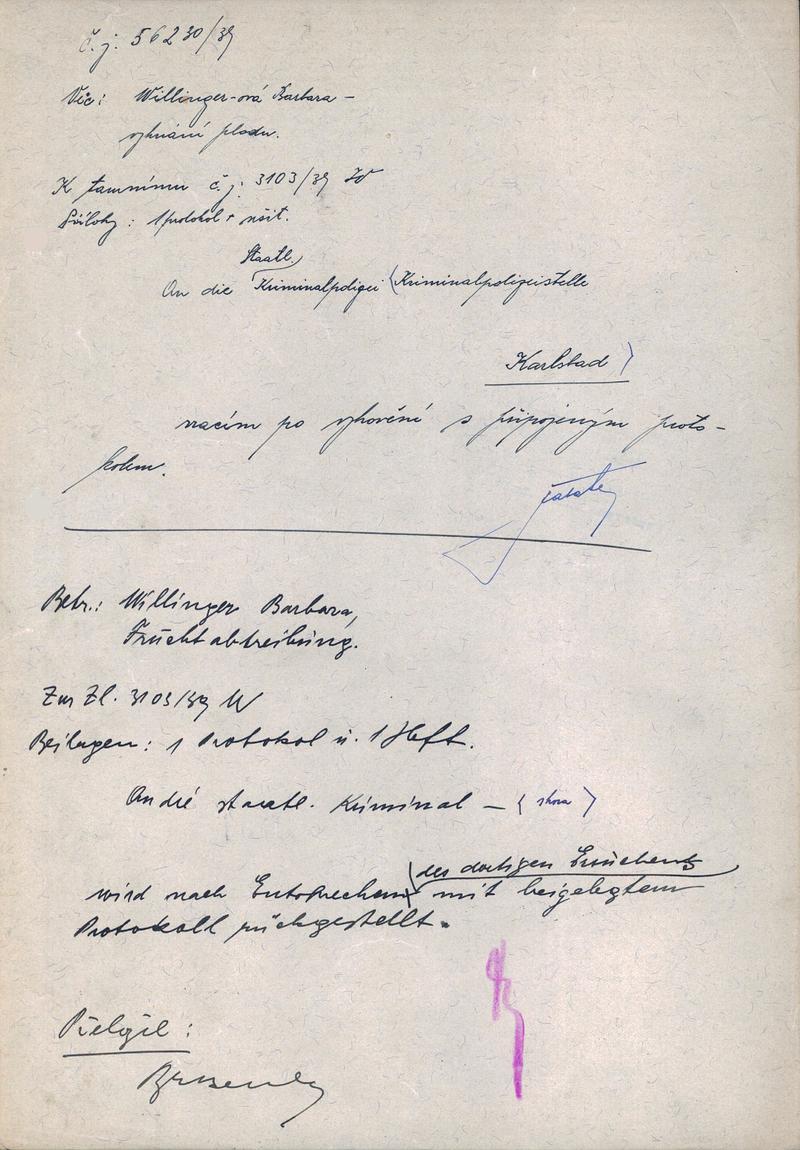 č. j. 56230/39
Věc: Willinger-ová Barbara –
vyhnání plodu.
K tamnímu č. j. 3103/39 W
Přílohy: 1 protokol + sešit.
Staatl.
An die Kriminalpolizei (Kriminalpolizeistelle
Karlstad)
vracím po vyhovění s připojeným proto-
kolem.
Betr.: Willinger Barbara,
Fruchtabtreibung.
Zur Zl. 3103/39 W
Beilagen: 1 Protokol u. 1 Heft.
An die staatl. Kriminal – (shora)
des dortigen Ersuchens
wird nach Entsprechen mit beigelegtem
Protokoll rückgestellt.